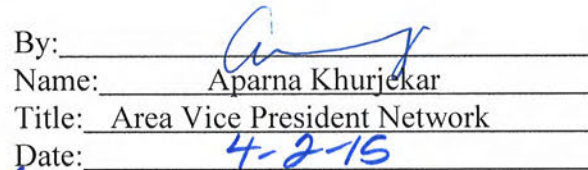 By:
Name: Aparna Khurjekar
Title: Area Vice President Network
Date: 4-2-15